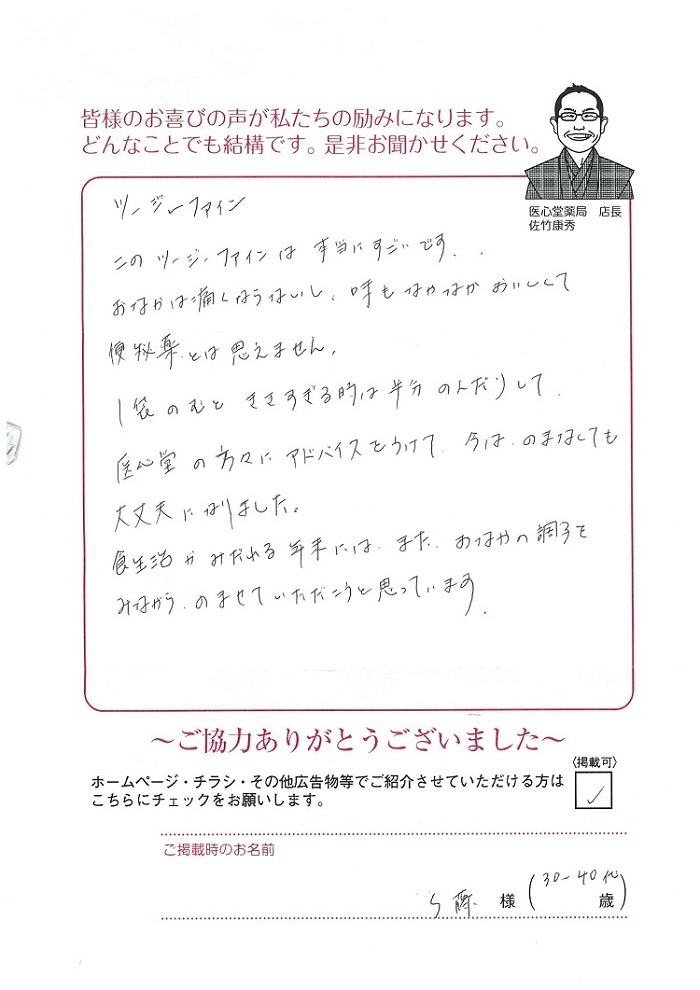 皆様のお喜びの声が私たちの励みになります。
どんなことでも結構です。是非お聞かせください。
医心堂薬局 店長
佐竹康秀
ツージーファイン
このツージーファインは本当にすごいです。
おなかは痛くならないし、味もなかなかおいしくて
便秘薬とは思えません。
1袋のむと ききすぎる時は半分のんだりして
医心堂の方々にアドバイスをうけて、今は、のまなくても
大丈夫になりました。
食生活がみだれる年末には、また、おなかの調子を
みながら、のませていただこうと思っています。
〜ご協力ありがとうございました〜
〈掲載可〉
ホームページ・チラシ・その他広告物等でご紹介させていただける方は
こちらにチェックをお願いします。
✓
ご掲載時のお名前
藤 様 (30-40代 歳)